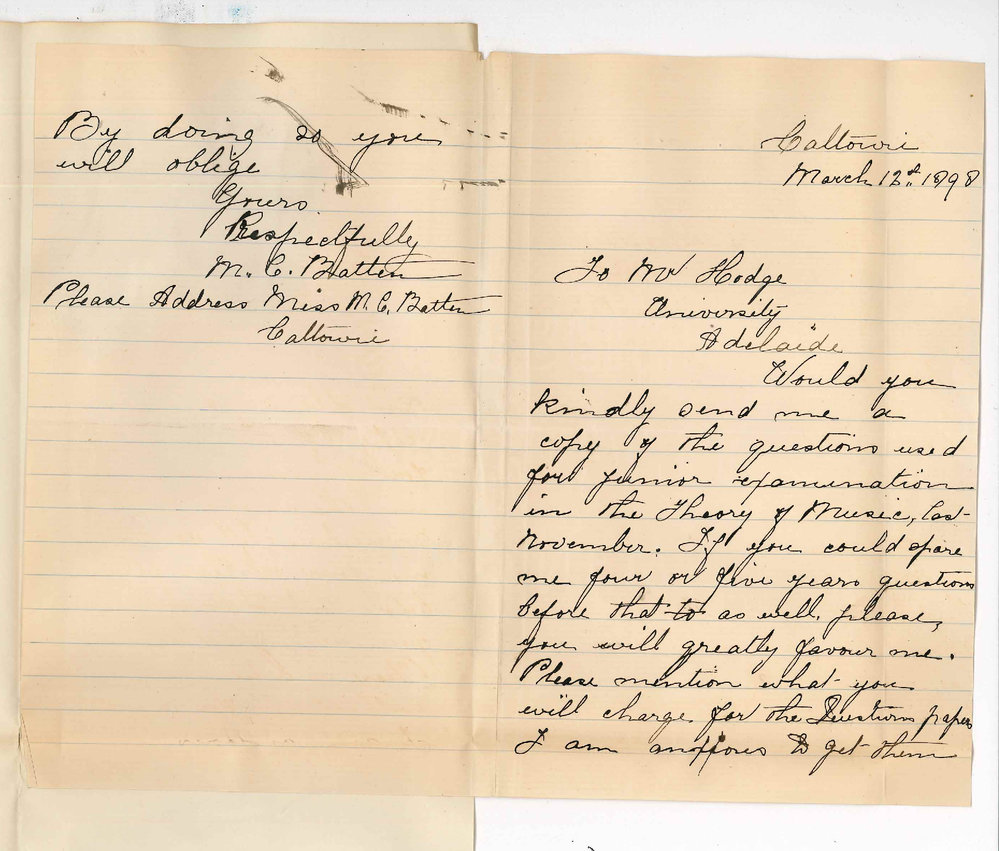 Caltowie
March 12th 1898
To Mr Hodge
University
Adelaide
Would you
kindly send me a
copy of the questions used
for junior examination
in the Theory of Music, last
November. If you could spare
me four or five years questions
before that to as well, please,
you will greatly favour me.
Please mention what you
will charge for the Questions papers
I am anxious to get them
By doing so you
will oblige
Yours
Respectfully
M. C. Batten
Please Address Miss M. C. Batten
Caltowie